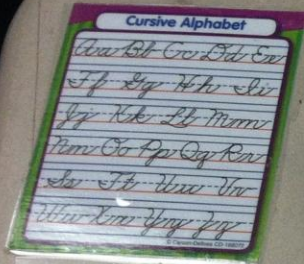 Cursive Alphabet
Aa Bb Cc Dd Ee
Ff Gg Hh Ii
Jj Kk Ll Mm
Nn Oo Pp Qq Rr
Ss Tt Uu Vv
Ww Xx Yy Zz